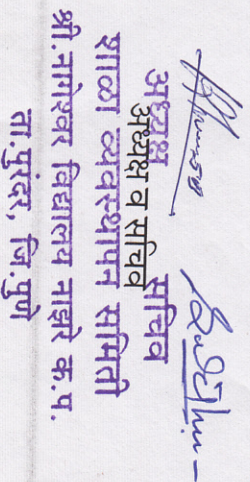 अध्यक्ष सचिव
अध्यक्ष व सचिव
शाळा व्यवस्थापन समिती
श्री.नागेश्वर विद्यालय नाझरे क.प.
ता.पुरंदर, जि.पुणे